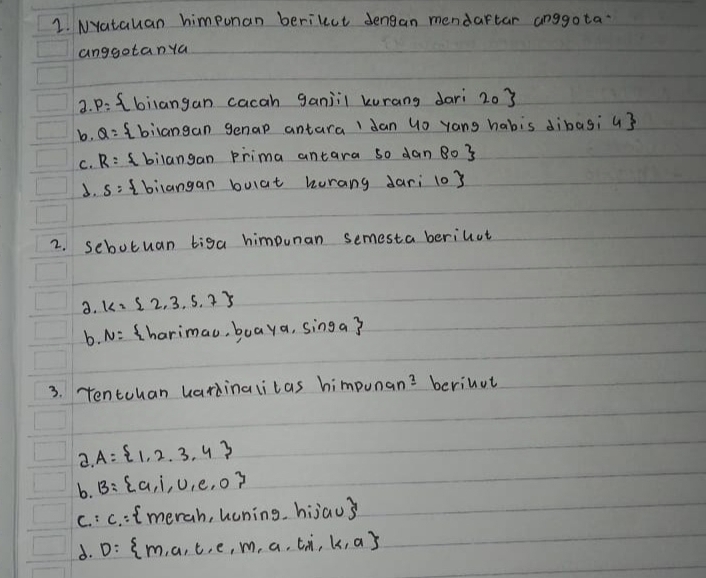 1. Nyatakan himpunan berikut dengan mendaftar anggota-
anggotanya
a. P= {bilangan cacah ganjil kurang dari 20}
b. Q= {bilangan genap antara 1 dan 40 yang habis dibagi 4}
c. R= {bilangan prima antara 50 dan 80}
d. S= {bilangan bulat kurang dari 10}
2. Sebutkan tiga himpunan semesta berikut
a. K= {2,3,5,7}
b. N= {harimau, buaya, singa}
3. Tentukan kardinalitas himpunan² berikut
a. A= {1,2,3,4}
b. B= {a,i,u,e,o}
c. : C.= {merah, kuning, hijau}
d. D: {m,a,t,e,m,a,t,i,k,a}